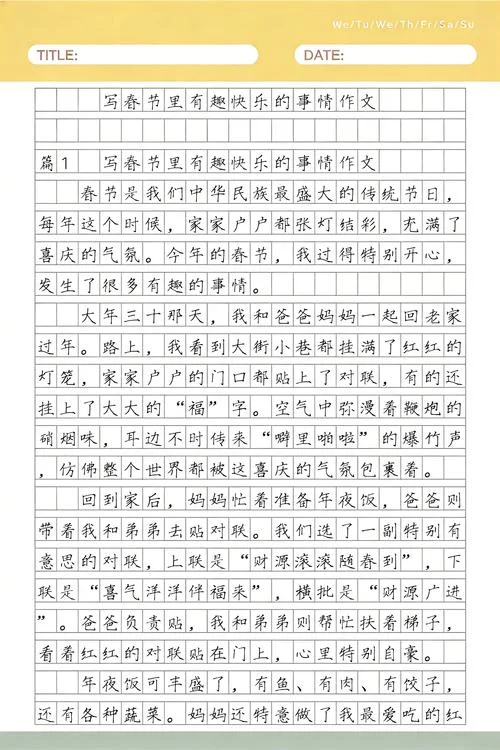 We/Tu/We/Th/Fr/Sa/Su
TITLE:
DATE:
写春节里有趣快乐的事情作文
篇1 写春节里有趣快乐的事情作文
春节是我们中华民族最盛大的传统节日，
每年这个时候，家家户户都张灯结彩，充满了
喜庆的气氛。今年的春节，我过得特别开心，
发生了很多有趣的事情。
大年三十那天，我和爸爸妈妈一起回老家
过年。路上，我看到大街小巷都挂满了红红的
灯笼，家家户户的门口都贴上了对联，有的还
挂上了大大的“福”字。空气中弥漫着鞭炮的
硝烟味，耳边不时传来“噼里啪啦”的爆竹声
，仿佛整个世界都被这喜庆的气氛包裹着。
回到家后，妈妈忙着准备年夜饭，爸爸则
带着我和弟弟去贴对联。我们选了一副特别有
意思的对联，上联是“财源滚滚随春到”，下
联是“喜气洋洋伴福来”，横批是“财源广进
”。爸爸负责贴，我和弟弟则帮忙扶着梯子，
看着红红的对联贴在门上，心里特别自豪。
年夜饭可丰盛了，有鱼、有肉、有饺子，
还有各种蔬菜。妈妈还特意做了我最爱吃的红